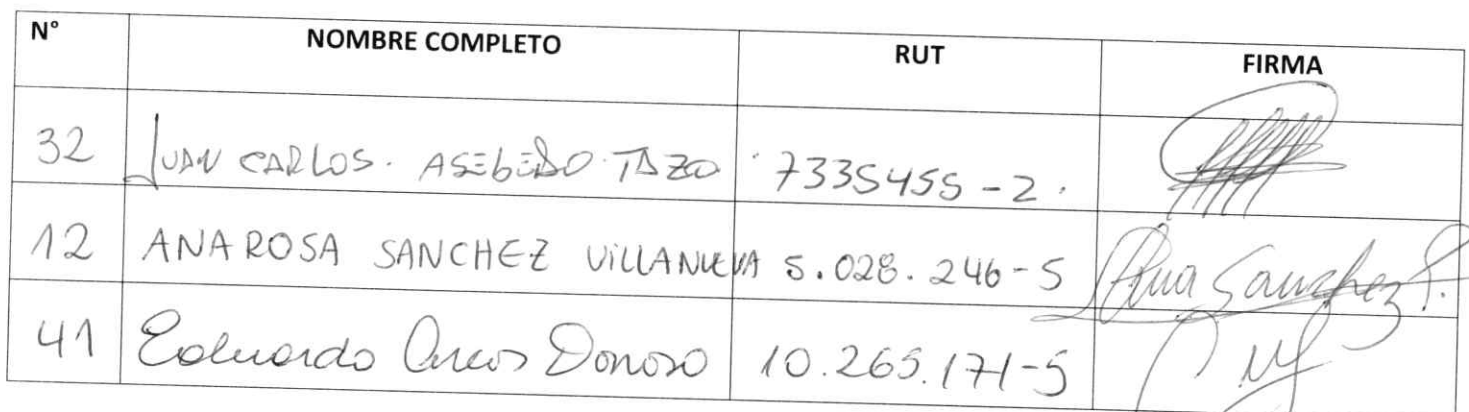 N° NOMBRE COMPLETO RUT FIRMA
32 JUAN CARLOS. ASEBEDO TAZO 7335455-2.
12 ANA ROSA SANCHEZ VILLANUEVA 5.028.246-5 Ana Sanchez
41 Eduardo Arcos Donoso 10.265.171-5